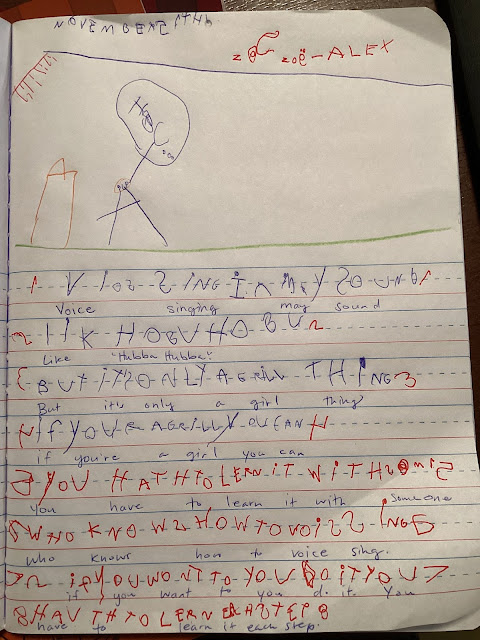 zoë-ALEX
1 VIOS SING IN MAY SOUND 1
Voice singing may sound
2 LIK HOBUHOBU 2
Like "Hubba Hubba".
3 BUT ITSONLY A GERIL THING 3
But it's only a girl thing
4 IF YOUR A GERILL YOU CAN 4
if you're a girl you can
5 YOU HAFTH TO LERN IT WITH SOMI 5
You have to learn it with someone
6 WHO KNOWS HOW TO VOISSING 6
who knows how to voice sing.
7 IF YOU WONT TO YOU DO IT YOU 7
if you want to you do it. You
8 HAV TH TO LERN EH STEP 8
have to learn it each step.